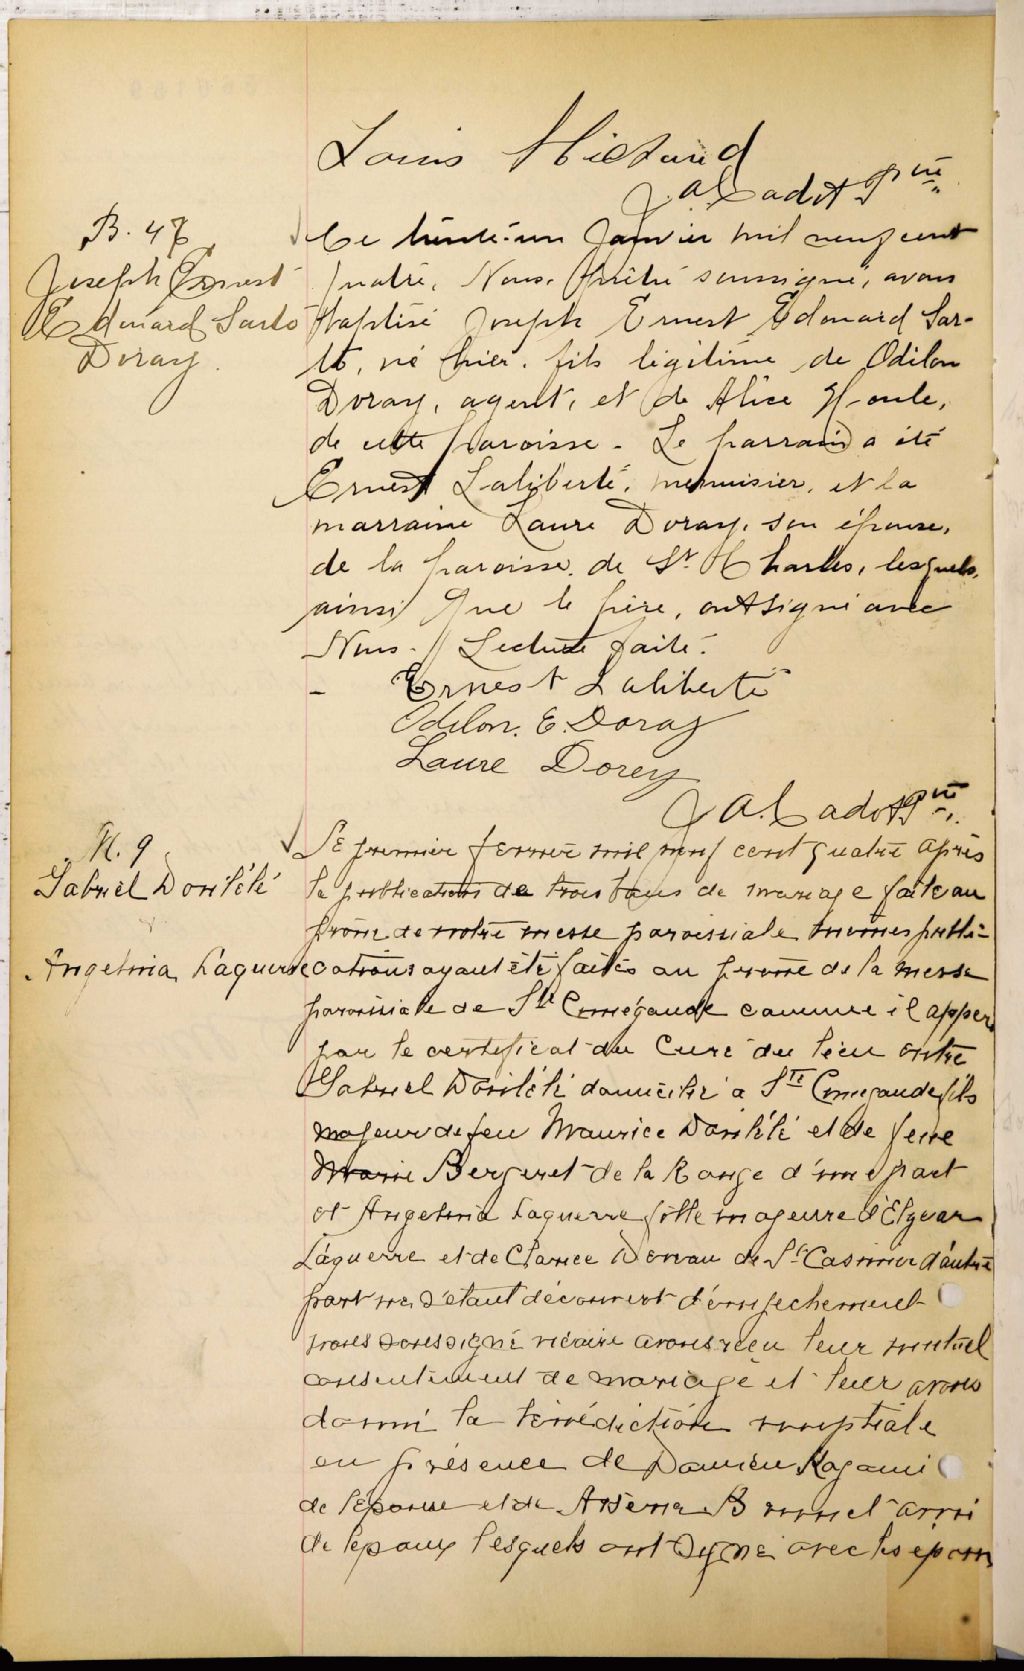 Louis
J. A. Cadot Ptre
B. 47
Joseph Ernest
Edouard Sarto
Doray.
Ce trente-un Janvier mil neuf cent
quatre, Nous, Prêtre soussigné, avons
baptisé Joseph Ernest Edouard Sar-
to, né hier, fils légitime de Odilon
Doray, agent, et de Alice Houle,
de cette paroisse. Le parrain a été
Ernest Laliberté, menuisier, et la
marraine Laure Doray, son épouse,
de la paroisse de St Charles, lesquels,
ainsi que le père, ont signé avec
Nous. Lecture faite.
Ernest Laliberté
Odilon. E. Doray
Laure Dorey
J. A. Cadot Ptre.
M. 9
Gabriel
Angelina Laguerre
Le premier fevrier mil neuf cent quatre après
la publication de trois bans de mariage faite au
prône de notre messe paroissiale mêmes publi-
cations ayant été faites au prône de la messe
paroissiale de Ste Cunégonde comme il appert
par le certificat du Curé du lieu entre
Gabriel domicilié à Ste Cunegonde fils
majeur de feu Maurice et de feue
Marie Bergeret de la d'une part
et Angelina Laguerre fille majeure d'Elzear
Laguerre et de Clarice de St Casimir d'autre
part ne s'étant découvert d'empechement
nous soussigné vicaire avons reçu leur mutuel
consentement de mariage et leur avons
donné la bénédiction nuptiale
en présence de Damien ami
de l'épouse et de Arsène ami
de lepoux lesquels ont signé avec les époux